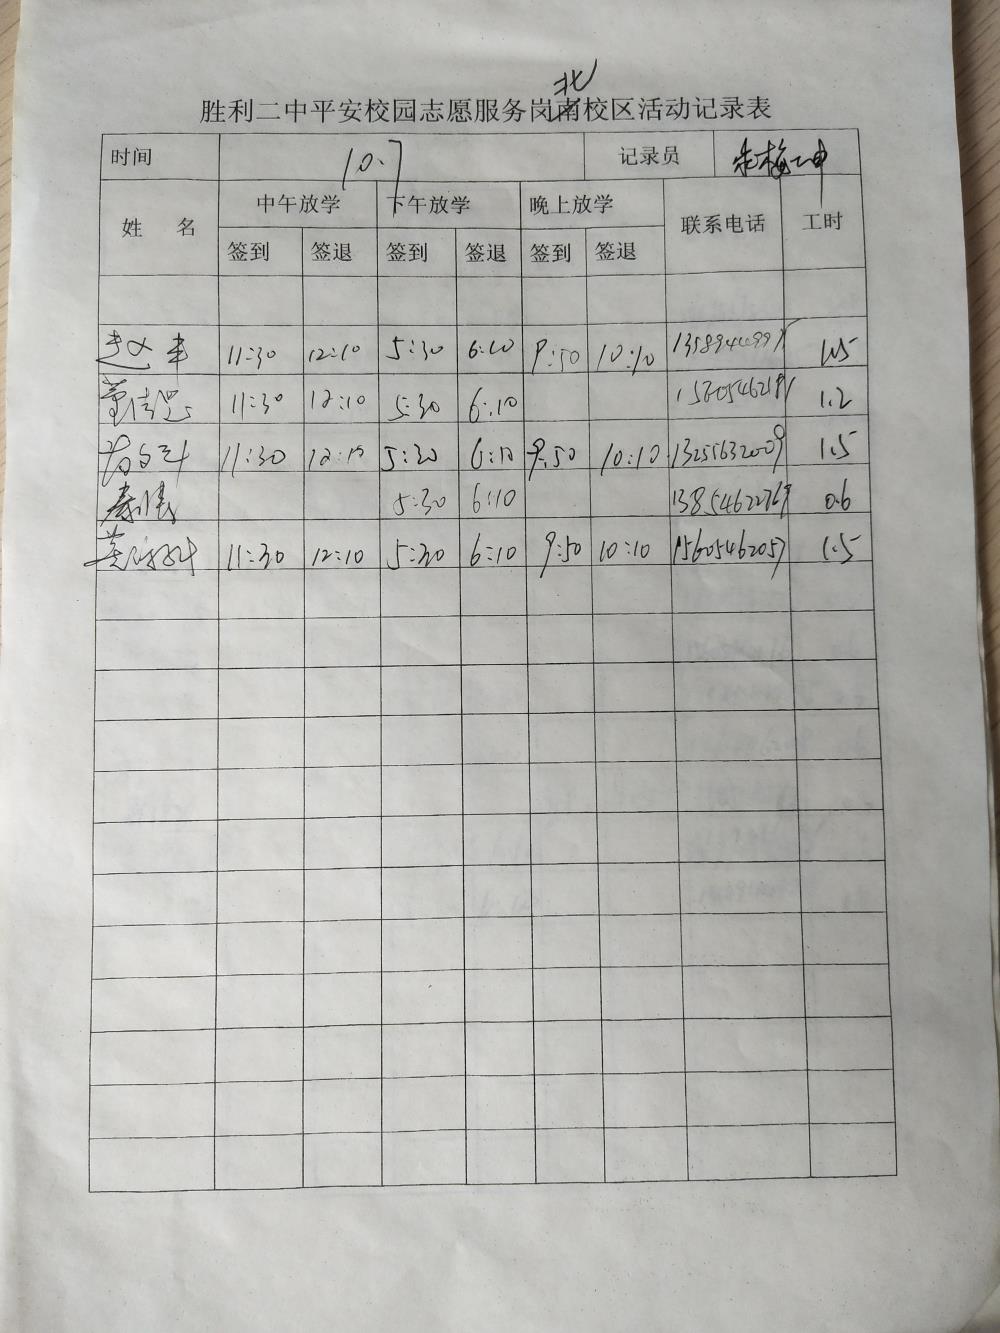 北
胜利二中平安校园志愿服务岗南校区活动记录表
时间 10.7 记录员
姓 名 中午放学 下午放学 晚上放学 联系电话 工时
签到 签退 签到 签退 签到 签退
11:30 12:10 5:30 6:10 9:50 10:10 1.5
11:30 12:10 5:30 6:10 1.2
11:30 12:10 5:30 6:10 9:50 10:10 13255632009 1.5
5:30 6:10 13854622769 0.6
11:30 12:10 5:30 6:10 9:50 10:10 15605462057 1.5